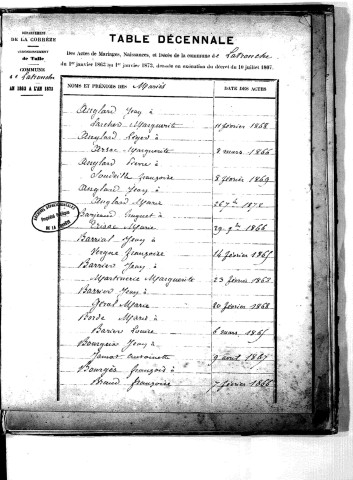 DÉPARTEMENT
DE LA CORRÈZE
ARRONDISSEMENT
de Tulle
COMMUNE
de Latronche
AN 1863 A L'AN 1873
TABLE DÉCENNALE
Des Actes de Mariages, Naissances, et Décès de la commune de Latronche
du 1er janvier 1863 au 1er janvier 1873, dressée en exécution du décret du 10 juillet 1807.
NOMS ET PRÉNOMS DES Mariés
DATE DES ACTES
Anglard Jean à
Marguerite 11 février 1868
Anglard Léger à
Marguerite 8 mars 1866
Anglard Pierre à
Soudeilh Françoise 8 février 1869
Anglard Jean à
Anglard Marie 26 1872
à
Marie 29 9bre 1866
Barriat Jean à
Vergne Françoise 14 février 1865
Barrier Jean à
Martinerie Marguerite 23 février 1863
Barrier Jean à
Marie 20 février 1868
Borde à
Barrier Louise 6 mars 1865
Jean à
Jamot Antoinette 9 avril 1867
Bourgès François à
Françoise 7 février 1866
ARCHIVES DÉPARTEMENTALES
Propriété Publique
DE LA CORRÈZE